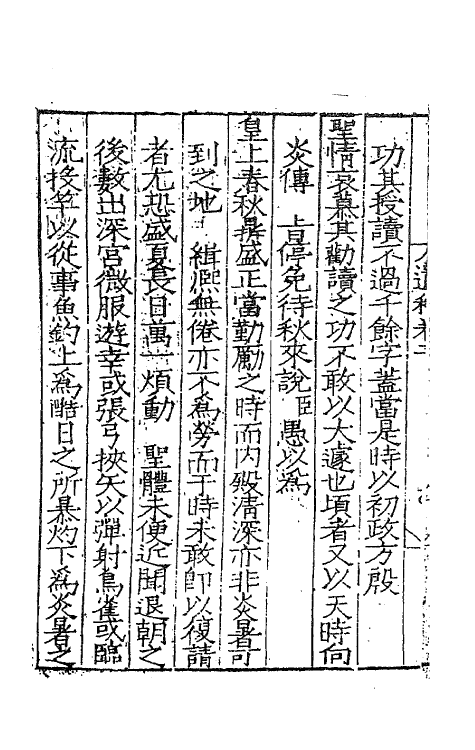 功其授讀不過千餘字蓋當是時以初政方殷
聖情哀慕其勸讀之功不敢以大遽也頃者又以天時向
炎傳 旨停免待秋來說臣愚以爲
皇上春秋鼎盛正當勤勵之時而内殿淸深亦非炎暑可
到之地 緝熙無倦亦不爲勞而于時未敢卽以復請
者尤恐盛夏長日萬一煩動 聖體未便近聞退朝之
後數出深宮微服遊幸或張弓挾矢以彈射鳥雀或臨
流投竿以從事魚釣上爲酷日之所暴灼下爲炎暑之